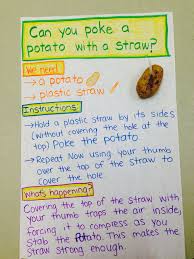 Can you poke a
potato with a straw?
We need:
→ a potato
→ plastic straw
Instructions:
→ Hold a plastic straw by its sides
(without covering the hole at the
top) Poke the potato
→ Repeat Now using your thumb
over the top of the straw to
Cover the hole
What's happening?
Covering the top of the straw with
your thumb traps the air inside,
Forcing it to compress as you
Stab the Potato. This makes the
Straw strong enough.